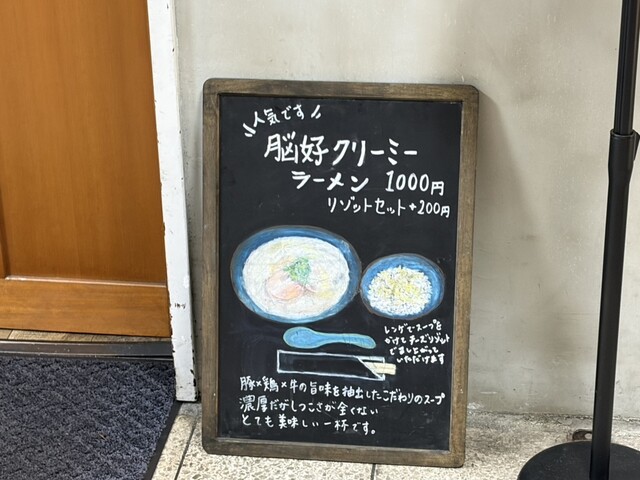 人気です
脳好クリーミー
ラーメン 1000円
リゾットセット+200円
レンゲでスープを
かけてチーズリゾット
でましあがって
いただけます
豚×鶏×牛の旨味を抽出したこだわりのスープ
濃厚だがしつこさが全くない
とても美味しい一杯です。